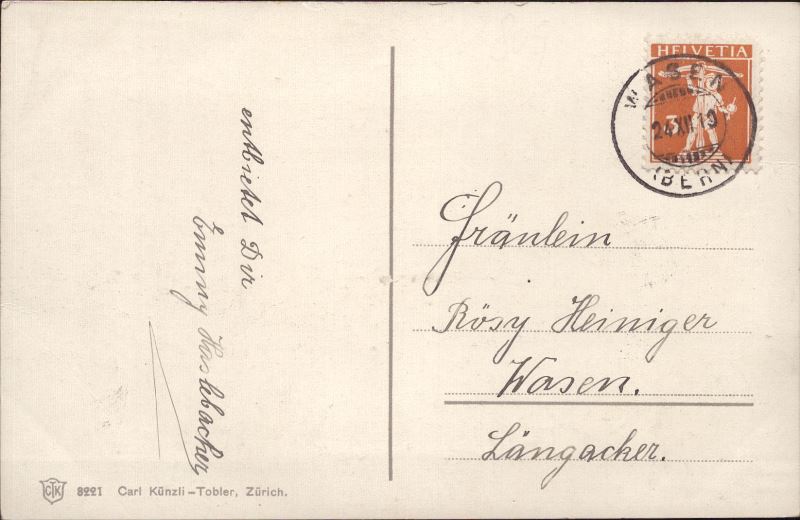 HELVETIA
WASEN
24 XII 10
(BERN)
entbietet Dir
Emmy Haslebacher
Fräulein
Rösy Heiniger
Wasen.
Längacker.
CTK 8221 Carl Künzli-Tobler, Zürich.